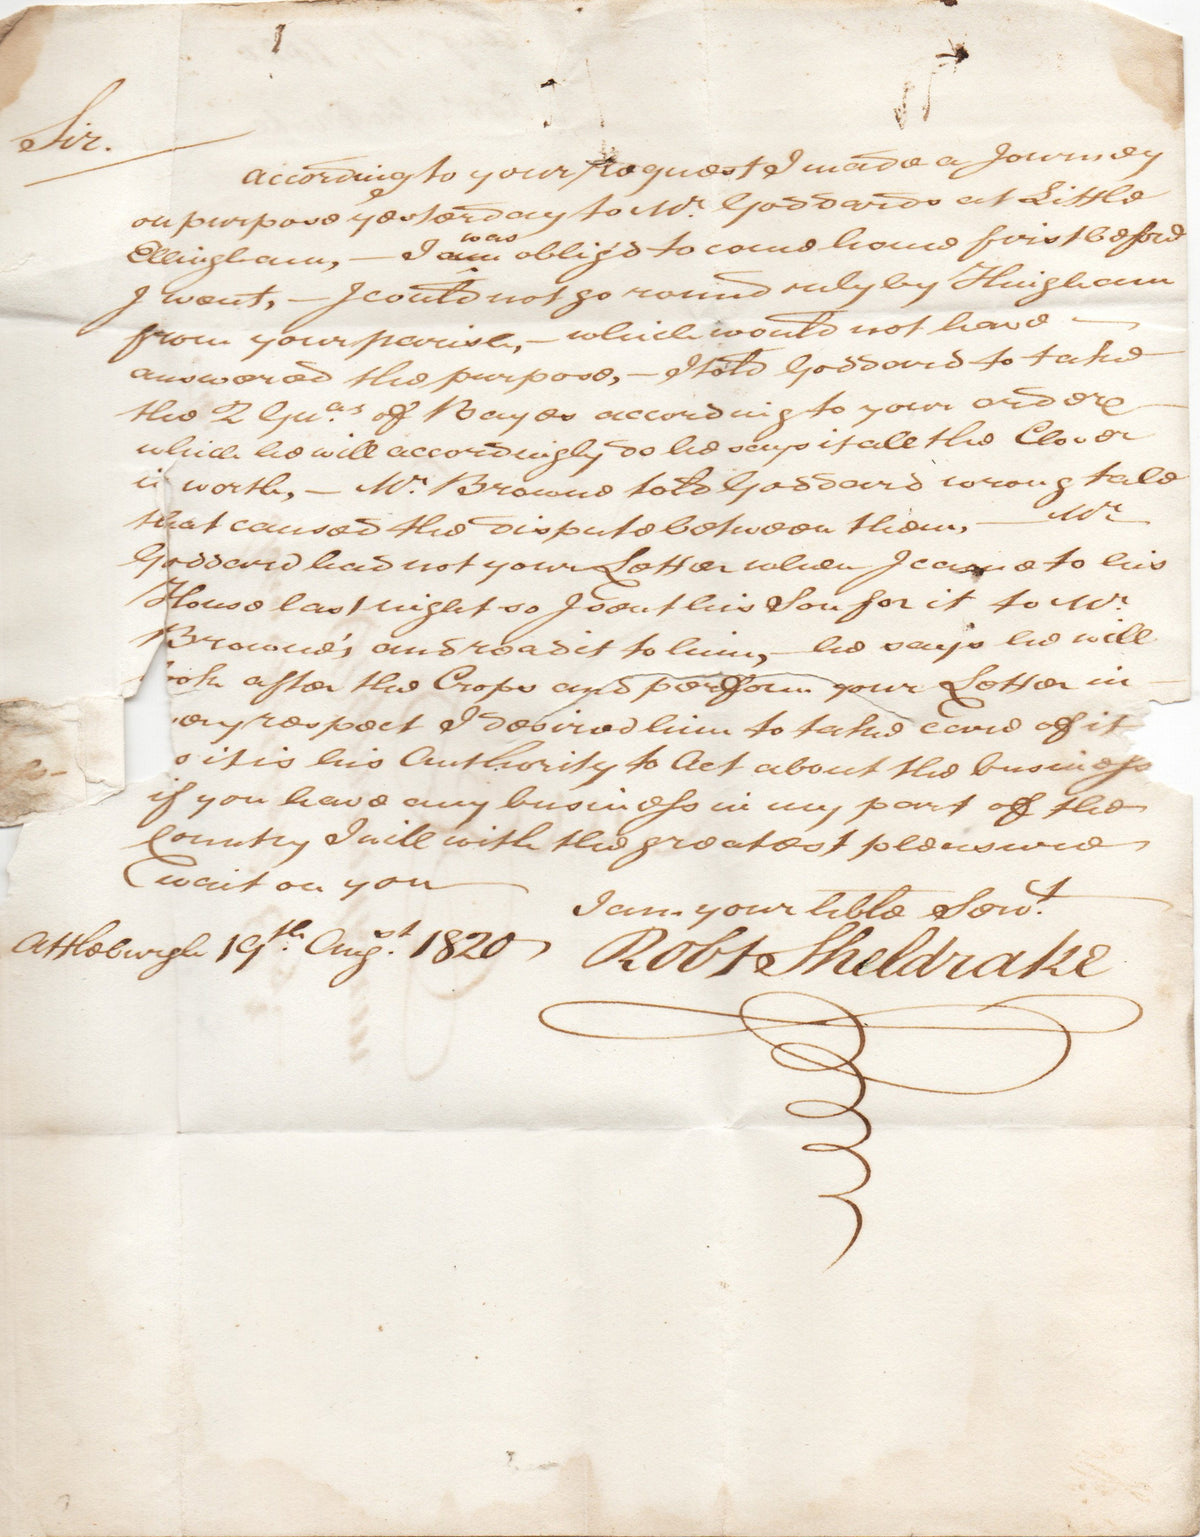 Sir.
according to your request I made a Journey
on purpose yesterday to Mr. Goddards at Little
Ellingham, — I was oblig'd to come home first before
I went, — I could not go round by Hingham
from your parish, — which would not have
answered the purpose, — I told Goddard to take
the 2 Gu.as of Bayes according to your order
which he will accordingly do he says it all the Clover
is worth, — Mr. Browne told Goddard wrong tale
that caused the dispute between them, — Mr
Goddard had not your Letter when I came to his
House last night so I sent his Son for it to Mr.
Browne's and read it to him, — he says he will
look after the Crops and perform your Letter in
every respect I desired him to take Care of it
as it is his Authority to Act about the business
if you have any business in my part of the
Country I will with the greatest pleasure
wait on you
I am your hble Servt.
Attleburgh 19th. Augst. 1820
Robt Sheldrake